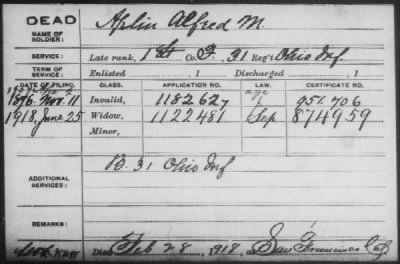 DEAD
NAME OF SOLDIER: Aplin Alfred M.
SERVICE: Late rank, 1 Lt Co. F, 31 Reg't Ohio Inf.
TERM OF SERVICE: Enlisted , 1 Discharged , 1
DATE OF FILING. CLASS. APPLICATION NO. LAW. CERTIFICATE NO.
1896 Nov. 11 Invalid, 1182627 951.706
age
1918, June 25 Widow, 1122481 Sep 874959
Minor,
ADDITIONAL SERVICES: B. 31 Ohio Inf
REMARKS:
Died Feb 28, 1918, at San Francisco Cal